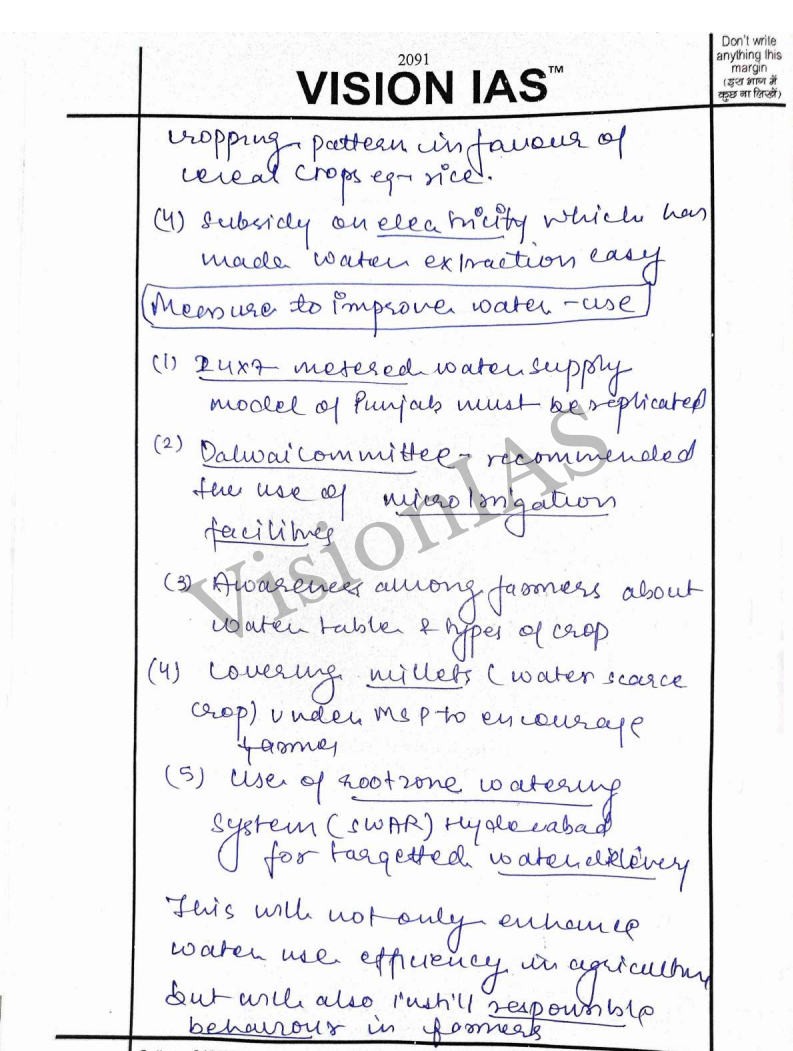 2091
VISION IAS™
Don't write
anything this
margin
(इस भाग में
कुछ ना लिखें)
cropping pattern in favour of
cereal crops eg- rice.
(4) Subsidy on electricity which has
made water extraction easy
Measure to improve water-use
(1) 24x7 metered water supply
model of Punjab must be replicated
(2) Dalwai committee - recommended
the use of micro irrigation
facilities
(3) Awareness among farmers about
water table & types of crop
(4) Covering millets (water scarce
crop) under MSP to encourage
farmer
(5) Use of root zone watering
system (SWAR) Hyderabad
for targetted water delivery
This will not only enhance
water use efficiency in agriculture
but will also instill responsible
behaviour in farmers
VisionIAS